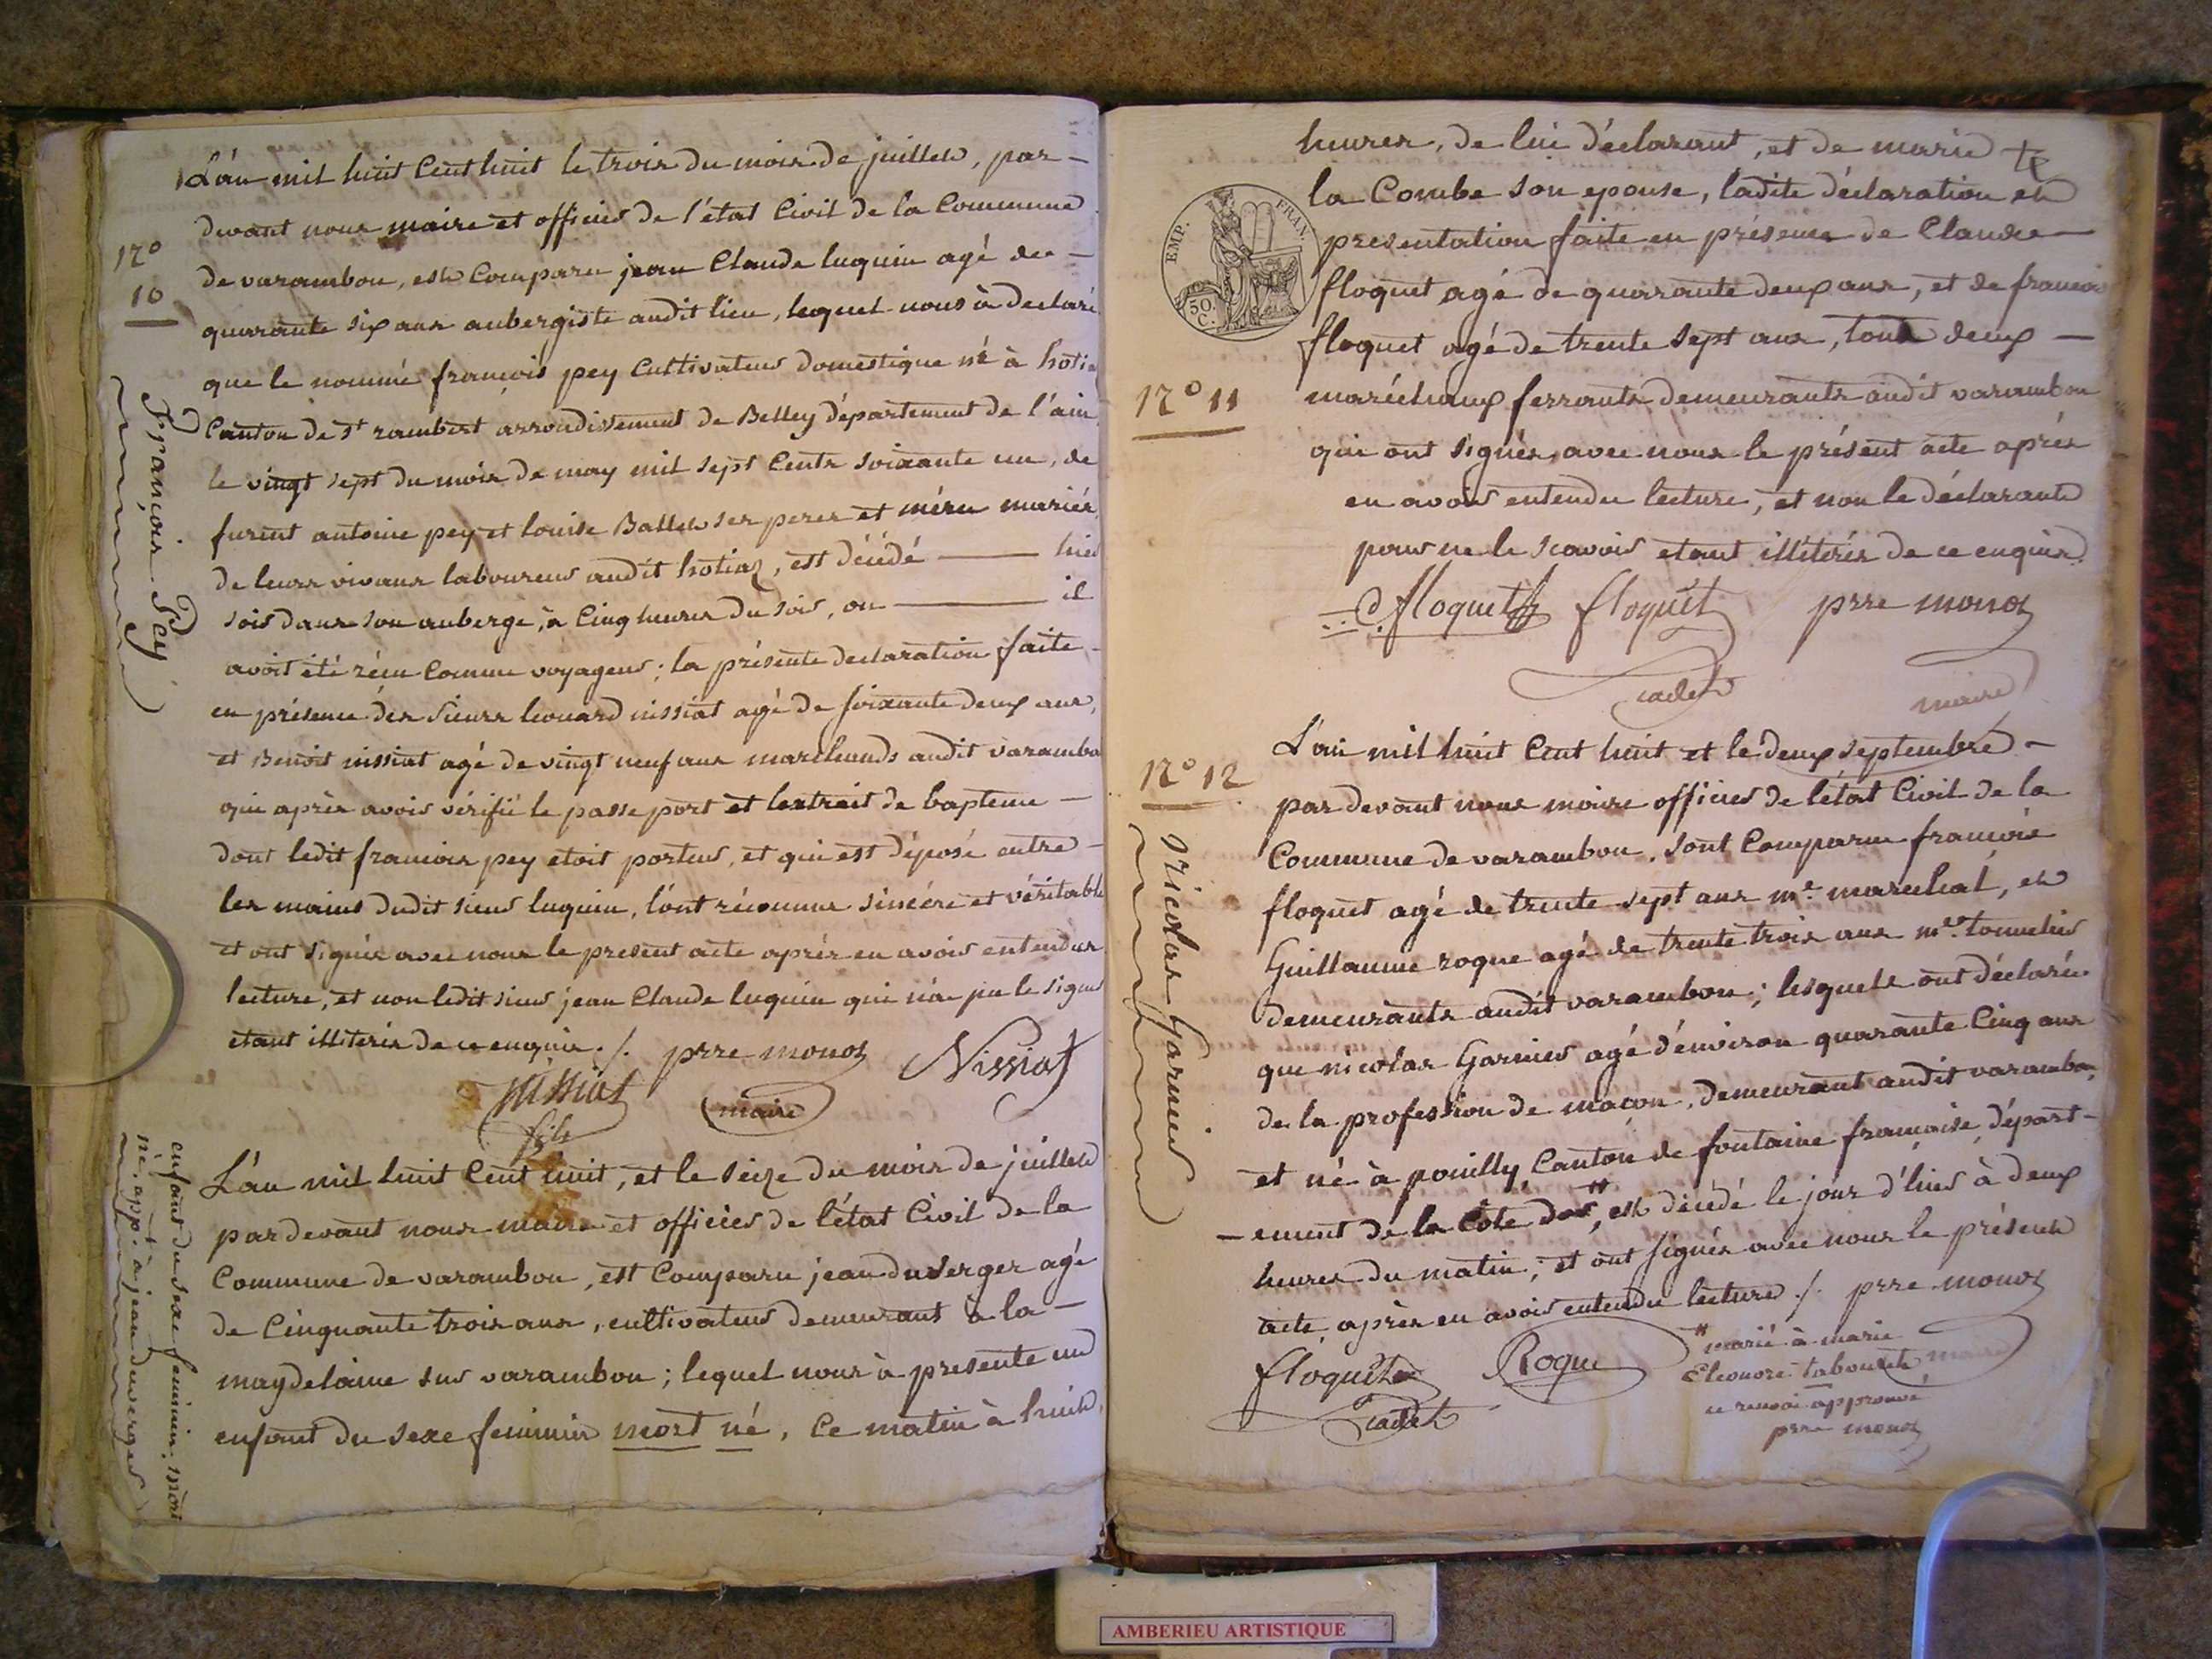 L'an mil huit Cent huit le trois du mois de juillet, par-
devant nous maire et officier de l'état Civil de la Commune
de varambon, est Comparu jean Claude luquin agé de -
quarante six ans aubergiste audit lieu, lequel nous à declaré
que le nommé françois pey Cultivateur domestique né à hotiaz
Canton de St rambert arrondissement de Belley département de l'ain
le vingt sept du mois de may mil sept Cents soixante un, de
furent antoine pey et louise Ballet ses peres et méres mariés,
de leurs vivans laboureur audit hotiaz, est décédé — hier
soir dans son auberge, à Cinq heures du soir, ou — il
avoit été réçu Comme voyageur; la présente declaration faite
en présence des Sieurs leonard nissiat agé de soixante deux ans,
et Benoit nissiat agé de vingt neuf ans marchands audit varambon
qui après avoir vérifié le passe port et lextrait de bapteme -
dont ledit francois pey etoit porteur, et qui est déposé entre -
les mains dudit sieur luquin, l'ont réconnus sincére et véritable
et ont signés avec nous le present acte aprés en avoir entendus
lecture, et non ledit sieur jean Claude luquin qui n'a pu le signer
étant illiterés de ce enquis ./. prre monoz Nissiat
nissiat
fils
maire
N°
10
François Pey
L'an mil huit Cent huit, et le seize du mois de juillet
pardevant nous maire et officier de l'état Civil de la
Commune de varambon, est Comparu jean duverger agé
de Cinquante trois ans, cultivateur demeurant à la -
maydelaine sur varambon; lequel nous à presenté un
enfant du sexe feminin mort né, Ce matin à huit
enfant du sexe feminin mort
né, appt. à jean duverger
heures, de lui déclarant, et de marie
la Combe son epouse, ladite déclaration et
presentation faite en présence de Claude -
floquet agé de quarante deux ans, et de francois
floquet agé de trente sept ans, tous deux -
maréchaux ferrants demeurants audit varambon
qui ont signés, avec nous le présent acte aprés
en avoir entendu lecture, et non le déclarant
pour ne le scavoir etant illiterés de ce enquis
floquet floquet prre monoz
cadet maire
EMP. FRAN.
50.
C.
N° 11
L'an mil huit Cent huit et le deux septembre -
par devant nous maire officier de l'état Civil de la
Commune de varambon, sont Comparus francois
floquet agé de trente sept ans me. marechal, et
Guillaume roque agé de trente trois ans me. tonnelier
demeurants audit varambon; lesquels ont déclarés
que nicolas Garnier agé d'environ quarante Cinq ans
de la profession de macon, demeurant audit varambon,
et né à pouilly, Canton de fontaine francaise, départ-
-ement de la Cote dor, est décédé le jour d'hier à deux
heures du matin, et ont signés avec nous le présent
acte, après en avoir entendu lecture ./. prre monoz
floquet Roque maire
cadet
marié à marie
Eleonore tabouret
ce renvoi approuvé
prre monoz
N° 12
Nicolas Garnier
AMBERIEU ARTISTIQUE